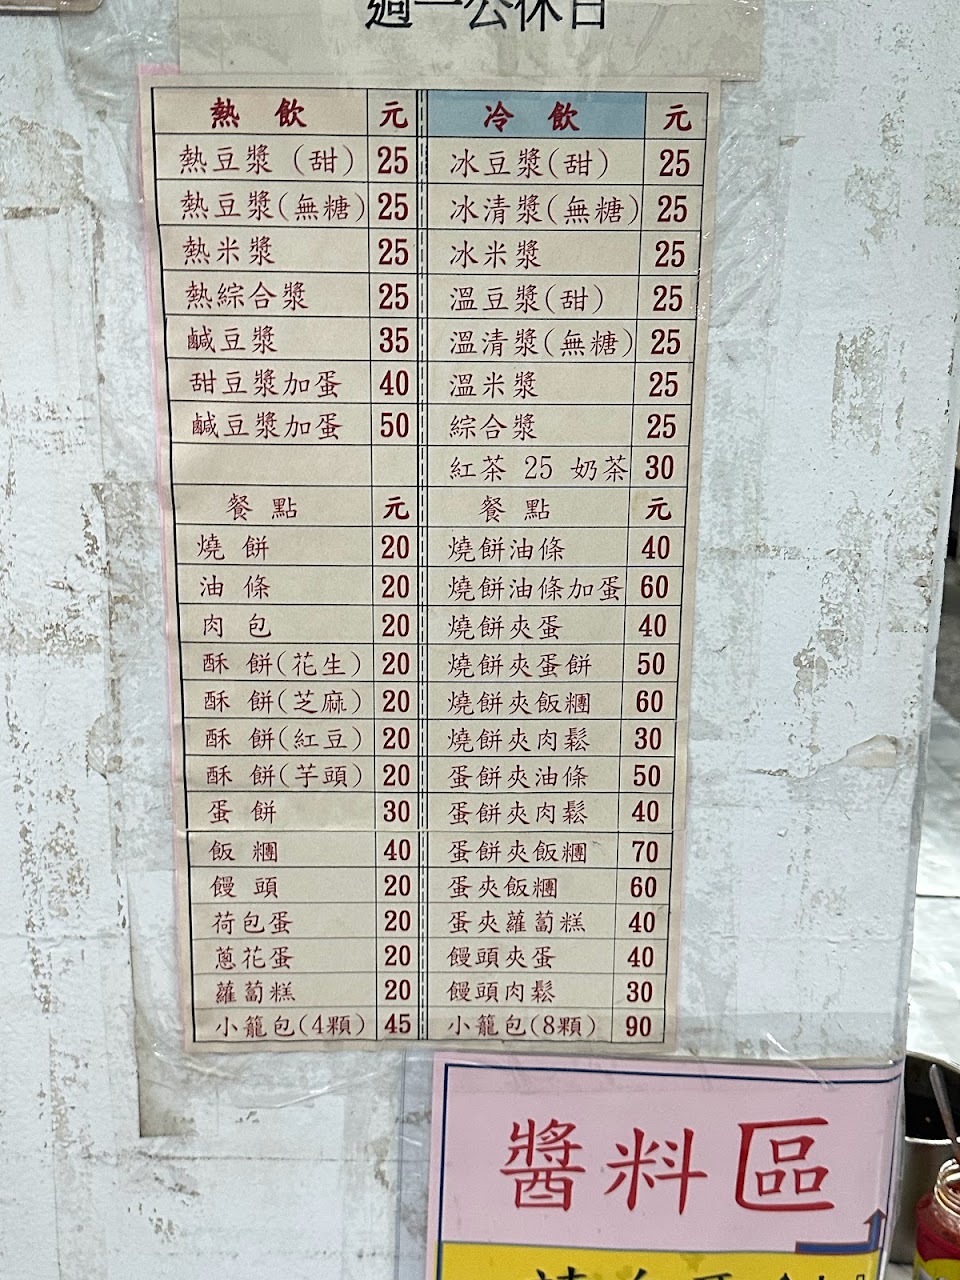 週一公休日
熱飲 元 冷飲 元
熱豆漿(甜) 25 冰豆漿(甜) 25
熱豆漿(無糖) 25 冰清漿(無糖) 25
熱米漿 25 冰米漿 25
熱綜合漿 25 溫豆漿(甜) 25
鹹豆漿 35 溫清漿(無糖) 25
甜豆漿加蛋 40 溫米漿 25
鹹豆漿加蛋 50 綜合漿 25
紅茶 25 奶茶 30
餐點 元 餐點 元
燒餅 20 燒餅油條 40
油條 20 燒餅油條加蛋 60
肉包 20 燒餅夾蛋 40
酥餅(花生) 20 燒餅夾蛋餅 50
酥餅(芝麻) 20 燒餅夾飯糰 60
酥餅(紅豆) 20 燒餅夾肉鬆 30
酥餅(芋頭) 20 蛋餅夾油條 50
蛋餅 30 蛋餅夾肉鬆 40
飯糰 40 蛋餅夾飯糰 70
饅頭 20 蛋夾飯糰 60
荷包蛋 20 蛋夾蘿蔔糕 40
蔥花蛋 20 饅頭夾蛋 40
蘿蔔糕 20 饅頭肉鬆 30
小籠包(4顆) 45 小籠包(8顆) 90
醬料區